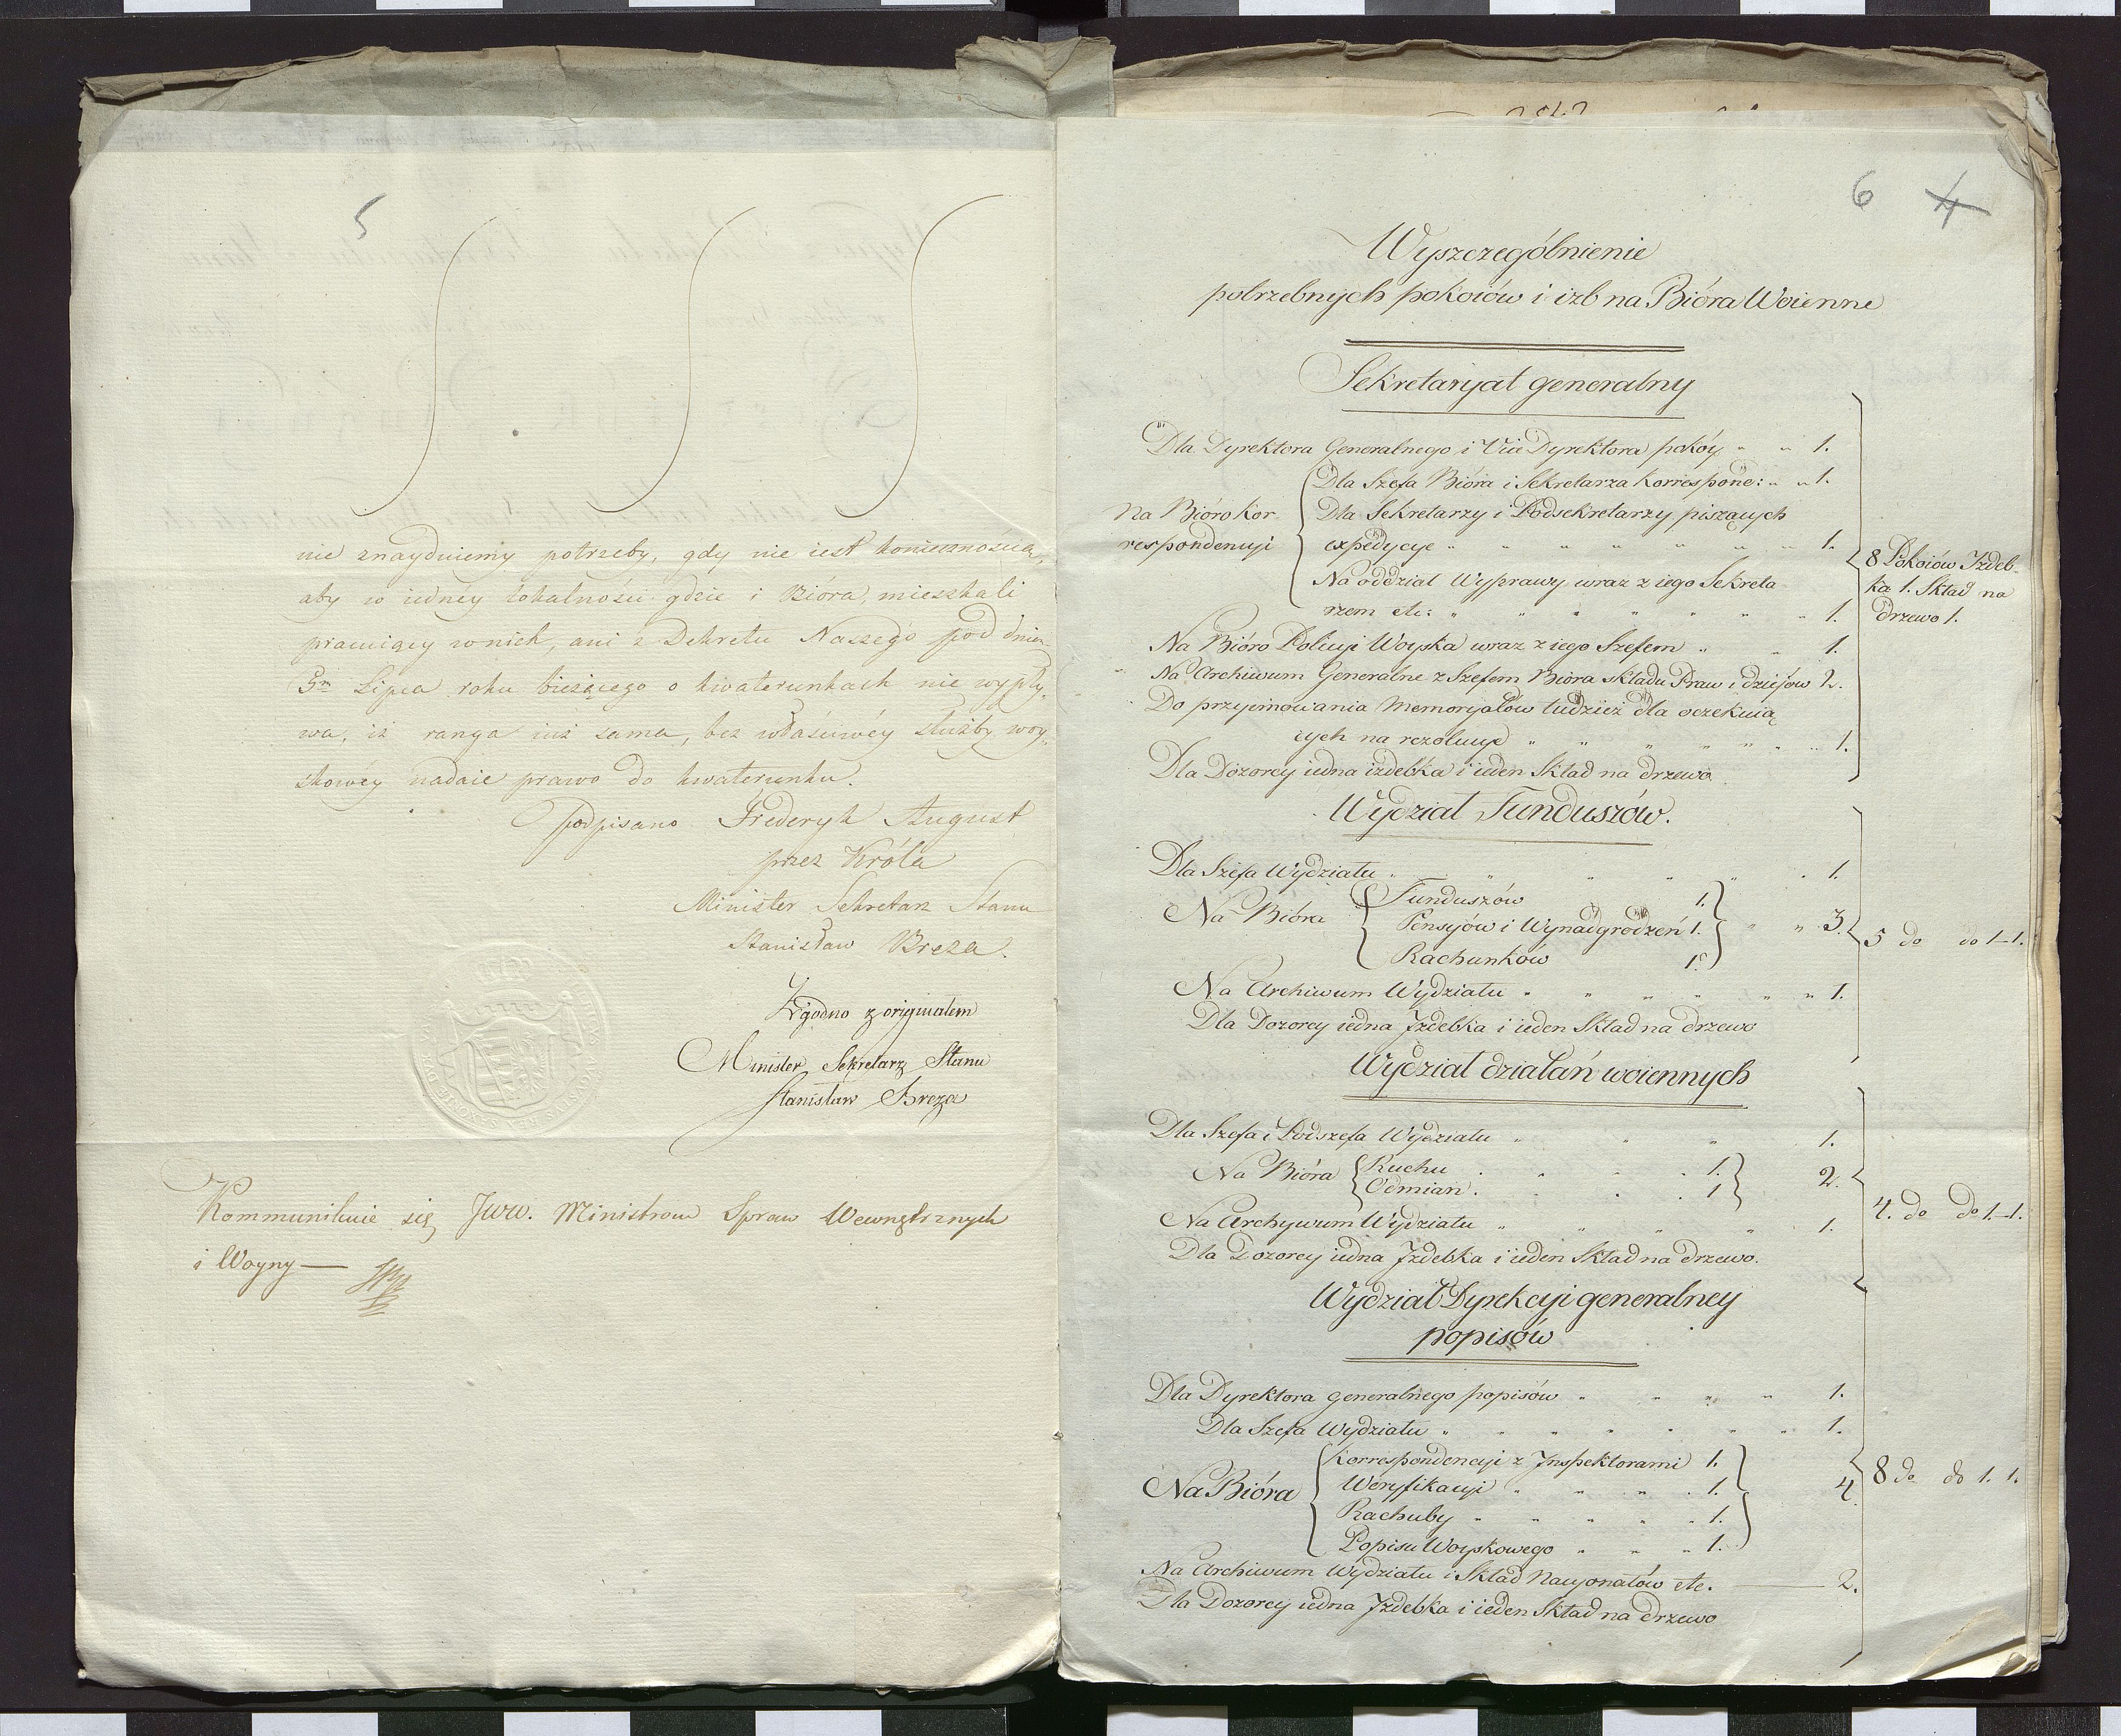 5
nie znayduiemy potrzeby, gdy nie iest koniecznością,
aby w iedney lokalności gdzie i Bióra, mieszkali
pracuiący w nich, ani z Dekretu Naszego pod dniem
5m Lipca roku bieżącego o kwaterunkach nie wypły-
wa, iż ranga iuż sama, bez właściwéy służby woy-
skowéy nadaie prawo do kwaterunku.
podpisano Frederyk August
przez Króla
Minister Sekretarz Stanu
Stanisław Breza.
Zgodno z originałem
Minister Sekretarz Stanu
Stanisław Breza
Kommunikuie się Jww. Ministrom Spraw Wewnętrznych
i Woyny —
6 4
Wyszczególnienie
potrzebnych pokoiów i izb na Bióra Woienne
Sekretaryat generalny
Dla Dyrektora Generalnego i Vice Dyrektora pokóy " " 1.
Dla Szefa Bióra i Sekretarza Korrespond: " " 1.
Na Bióro Kor- Dla Sekretarzy i Podsekretarzy piszących
respondencyi expedycye " " " " " " " 1.
8 Pokoiów Izdeb-
Na oddział Wyprawy wraz z iego Sekreta-
ka 1. Skład na
rzem etc: " " " " " " " 1.
drzewo 1.
Na Bióro Policyi Woyska wraz z iego Szefem " " 1.
Na Archiwum Generalne z Szefem Bióra składu Praw i dziejów 2.
Do przyimowania Memoryałów tudzież dla oczekuią-
cych na rezolucye " " " " " " " 1.
Dla Dozorcy iedna izdebka i ieden Skład na drzewo
Wydział Funduszów.
Dla Szefa Wydziału " " " " " " 1.
Na Bióra Funduszów 1.
Pensyów i Wynadgrodzeń 1. " " 3.
Rachunków 1.
5 do do 1–1.
Na Archiwum Wydziału " " " " " " 1.
Dla Dozorcy iedna Izdebka i ieden Skład na drzewo
Wydział działań woiennych
Dla Szefa i Podszefa Wydziału " " " 1.
Na Bióra Ruchu " " " 1.
2.
Odmian " " " 1
Na Archywum Wydziału " " " " 1.
4. do do 1.–1.
Dla Dozorcy iedna Izdebka i ieden Skład na drzewo.
Wydział Dyrekcyi generalney
popisów
Dla Dyrektora generalnego popisów " " " " 1.
Dla Szefa Wydziału " " " " " " " 1.
Korrespondencyi z Inspektorami 1.
Na Bióra Weryfikacyi " " " " 1. 4.
8 do do 1. 1.
Rachuby " " " " " 1.
Popisu Woyskowego " " " 1.
Na Archiwum Wydziału i Skład Racyonałów etc. — 2.
Dla Dozorcy iedna Izdebka i ieden Skład na drzewo